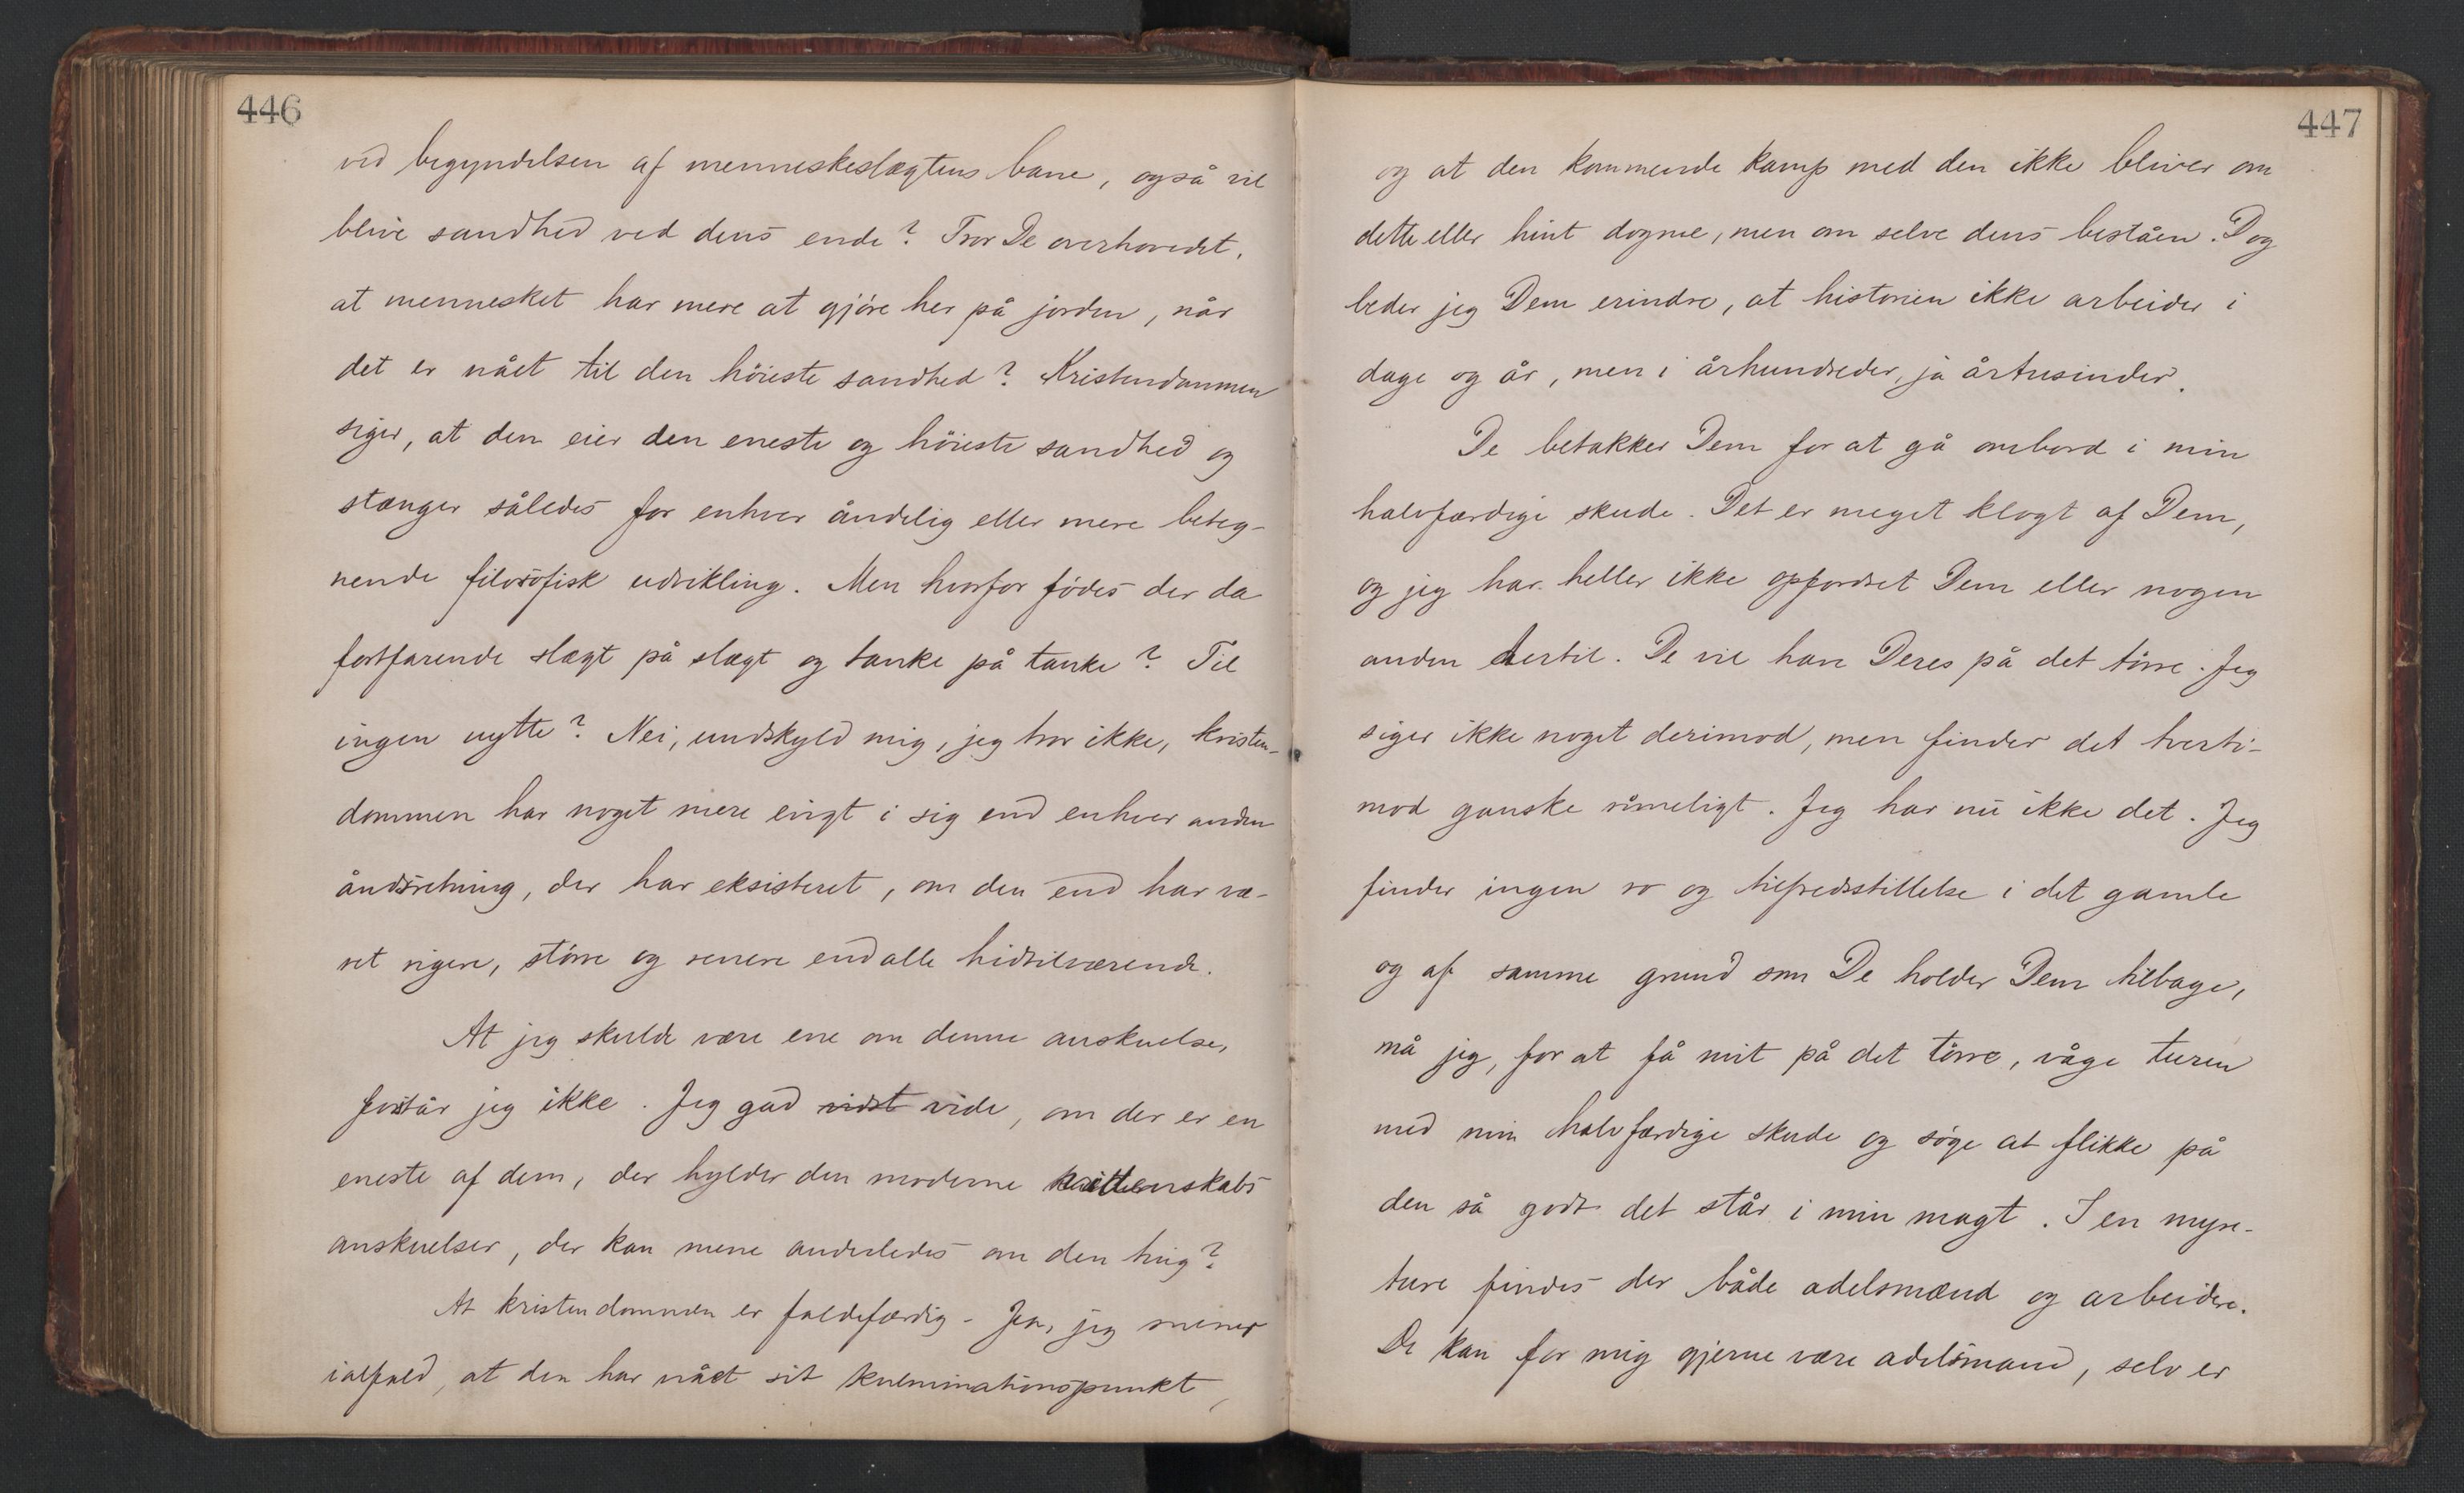 446
ved begyndelsen af menneskeslægtens bane, også vil
blive sandhed ved dens ende? Tror De overhovedet,
at mennesket har mere at gjøre her på jorden, når
det er nået til den höieste sandhed? Kristendommen
siger, at den eier den eneste og höieste sandhed og
stænger således for enhver åndelig eller mere beteg-
nende filosofisk udvikling. Men hvorfor födes der da
fortfarende slægt på slægt og tanke på tanke? Til
ingen nytte? Nei, undskyld mig, jeg tror ikke, kristen-
dommen har noget mere evigt i sig end enhver anden
åndsretning, der har eksisteret, om den end har væ-
ret rigere, större og renere end alle hidtilværende.
At jeg skulde være ene om denne anskuelse,
forstår jeg ikke. Jeg gad vidst vide, om der er en
eneste af dem, der hylder den moderne videnskabs
anskuelser, der kan mene anderledes om den ting?
At kristendommen er faldefærdig - Jea, jeg mener
ialfald, at den har nået sit kulminationspunkt,
447
og at den kommende kamp med den ikke bliver om
dette eller hint dogme, men om selve dens beståen. Dog
beder jeg Dem erindre, at historien ikke arbeider i
dage og år, men i århundreder, ja årtusinder.
De betakker Dem for at gå ombord i min
halvfærdige skude. Det er meget klogt af Dem,
og jeg har heller ikke opfordret Dem eller nogen
anden dertil. De vil have Deres på det törre. Jeg
siger ikke noget derimod, men finder det tverti-
mod ganske rimeligt. Jeg har nu ikke det. Jeg
finder ingen ro og tilfredsstillelse i det gamle
og af samme grund som De holder Dem tilbage,
må jeg, for at få mit på det törre, våge turen
med min halvfærdige skude og söge at flikke på
den så godt det står i min magt. I en myre-
tue findes der både adelsmænd og arbeidere.
De kan for mig gjerne være adelsmand, selv er